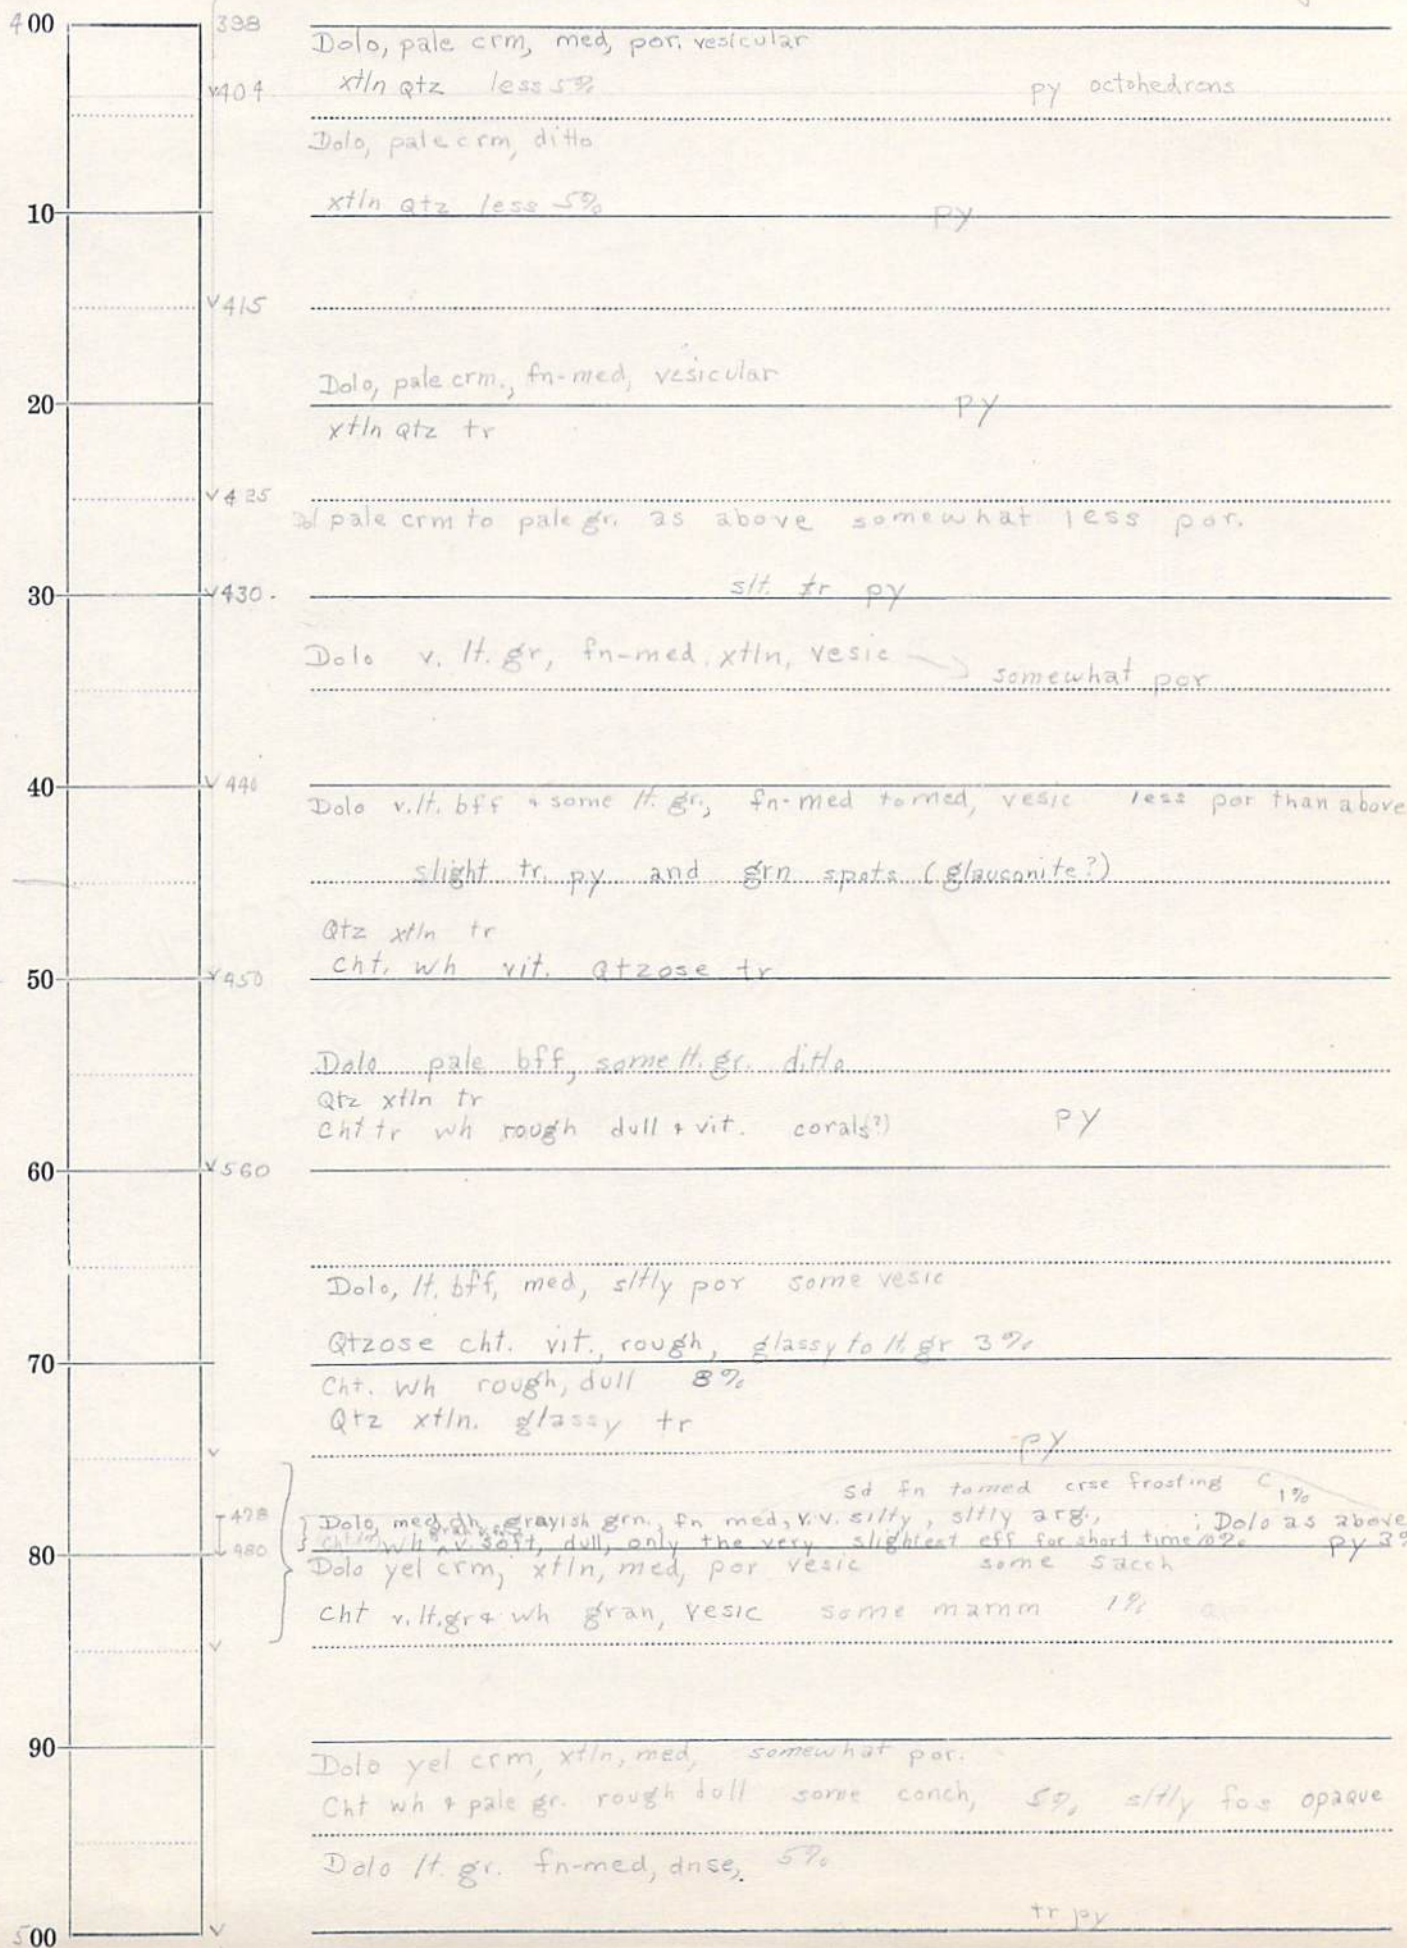 400 398
Dolo, pale crm, med, por. vesicular
v404 xtln qtz less 5% py octohedrons
Dolo, pale crm, ditto
xtln qtz less 5%
10 py
v415
Dolo, pale crm., fn-med, vesicular
20 py
xtln qtz tr
v425
Dol pale crm to pale gr. as above somewhat less por.
30 v430. slt. tr py
Dolo v. lt. gr, fn-med, xtln, vesic
somewhat por
40 v440
Dolo v.lt. bff + some lt. gr., fn-med to med, vesic less por than above
slight tr. py and grn spots (glauconite?)
Qtz xtln tr
50 v450 cht. wh vit. qtzose tr
Dolo pale bff, some lt. gr. ditto
Qtz xtln tr
Cht tr wh rough dull + vit. corals(?) py
60 v560
Dolo, lt. bff, med, sltly por some vesic
Qtzose cht. vit., rough, glassy to lt. gr 3%
70
Cht. wh rough, dull 8%
Qtz xtln. glassy tr
v py
Sd fn to med crse frosting C 1%
478 Dolo, med dk grayish grn., fn med, v.v. silty, sltly arg., ; Dolo as above
80 480 wh v. soft, dull, only the very slightest eff for short time py 3%
Dolo yel crm, xtln, med, por vesic some sacch
Cht v. lt. gr + wh gran, vesic some mamm 1%
v
90
Dolo yel crm, xtln, med, somewhat por.
Cht wh + pale gr. rough dull some conch, 5%, sltly fos opaque
Dolo lt. gr. fn-med, dnse, 5%
tr py
500 v